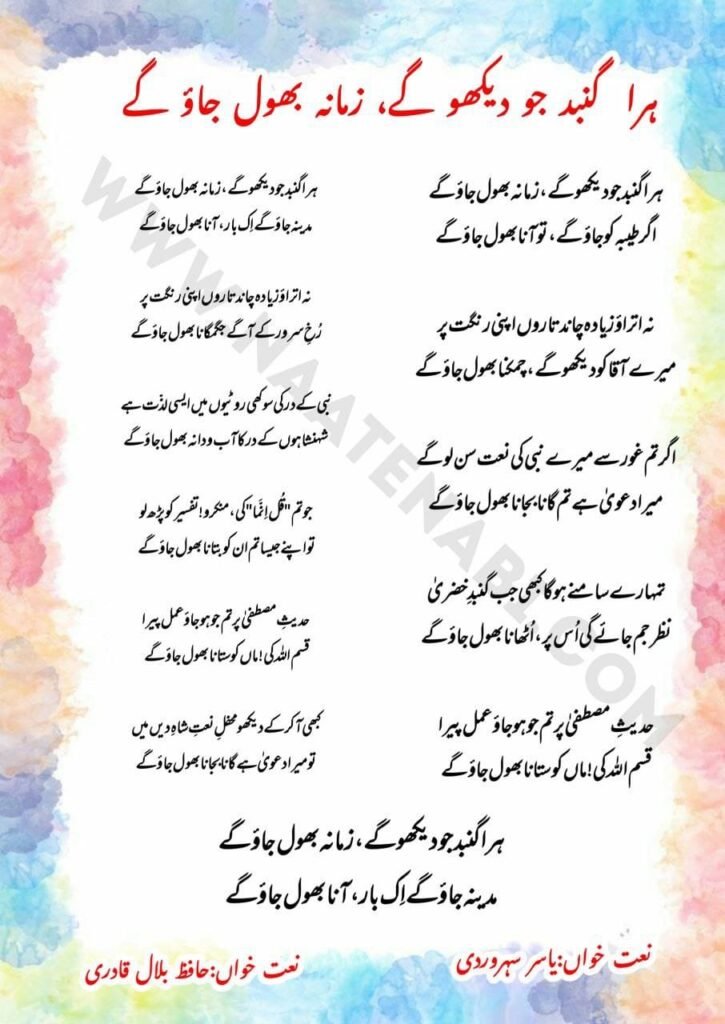 ہرا گنبد جو دیکھو گے، زمانہ بھول جاؤ گے
ہرا گنبد جو دیکھو گے، زمانہ بھول جاؤ گے
اگر طیبہ کو جاؤ گے، تو آنا بھول جاؤ گے
نہ اتراؤ زیادہ چاند تاروں اپنی رنگت پر
میرے آقا کو دیکھو گے، چمکنا بھول جاؤ گے
اگر تم غور سے میرے نبی کی نعت سن لو گے
میرا دعویٰ ہے تم گانا بجانا بھول جاؤ گے
تمہارے سامنے ہوگا کبھی جب گنبدِ خضریٰ
نظر جم جائے گی اُس پر، اُٹھانا بھول جاؤ گے
حدیثِ مصطفیٰ پر تم جو ہو جاؤ عمل پیرا
قسم اللہ کی! ماں کو ستانا بھول جاؤ گے
ہرا گنبد جو دیکھو گے، زمانہ بھول جاؤ گے
مدینہ جاؤ گے اِک بار، آنا بھول جاؤ گے
نہ اتراؤ زیادہ چاند تاروں اپنی رنگت پر
رُخِ سرور کے آگے جگمگانا بھول جاؤ گے
نبی کے در کی سوکھی روٹیوں میں ایسی لذّت ہے
شہنشاہوں کے در کا آب و دانہ بھول جاؤ گے
جو تم "قُل اِنَّمَا" کی، منکرو! تفسیر کو پڑھ لو
تو اپنے جیسا تم ان کو بتانا بھول جاؤ گے
حدیثِ مصطفیٰ پر تم جو ہو جاؤ عمل پیرا
قسم اللہ کی! ماں کو ستانا بھول جاؤ گے
کبھی آ کر کے دیکھو محفلِ نعتِ شاہِ دیں میں
تو میرا دعویٰ ہے گانا بجانا بھول جاؤ گے
ہرا گنبد جو دیکھو گے، زمانہ بھول جاؤ گے
مدینہ جاؤ گے اِک بار، آنا بھول جاؤ گے
نعت خواں: یاسر سہروردی
نعت خواں: حافظ بلال قادری
WWW.NAATENABI.COM